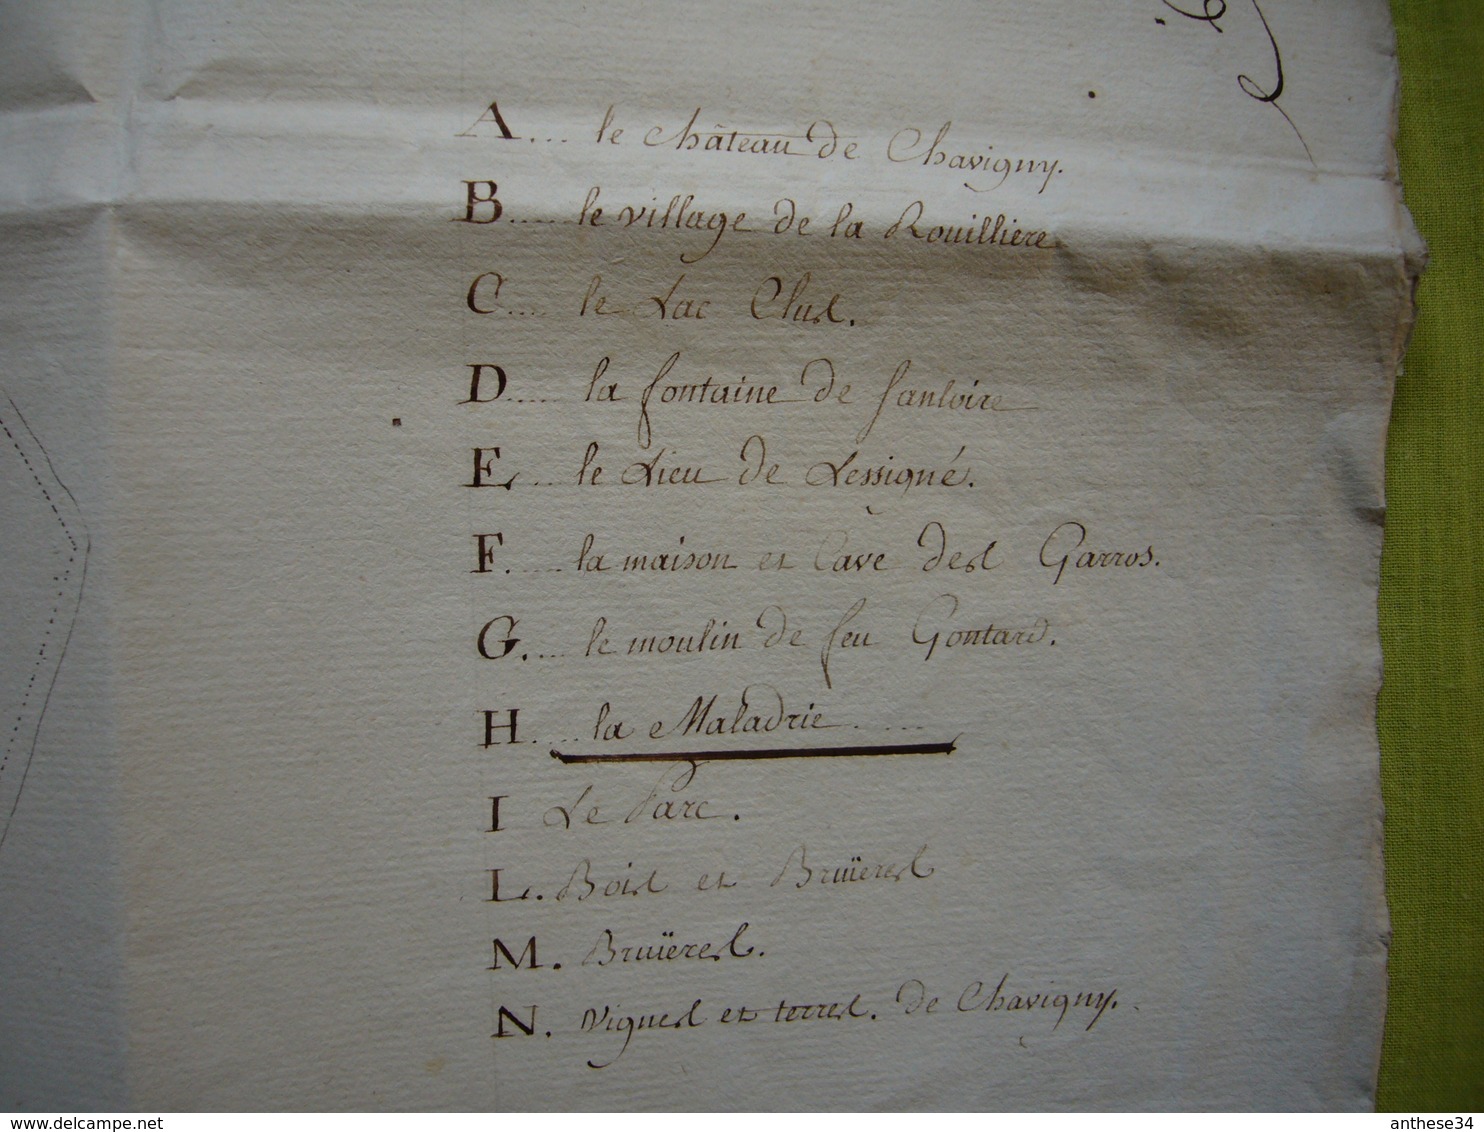 A.... le château de Chavigny.
B..... le village de la Rouilliere
C.... le Lac Clus.
D..... la fontaine de sanloire
E.... le Lieu de Lessigné.
F..... la maison et Cave des Garros.
G.... le moulin de feu Gontard.
H.... la Maladrie.....
I Le Parc.
L. Bois et Bruïeres
M. Bruïeres.
N. vignes et terres. de Chavigny.
anthese34